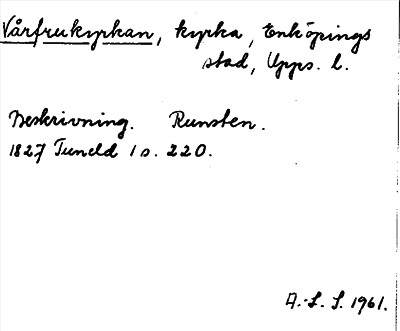 Vårfrukyrkan, kyrka, Enköpings
stad, Upps. l.
Beskrivning. Runsten.
1827 Tuneld 1 s. 220.
A.-L. S. 1961.